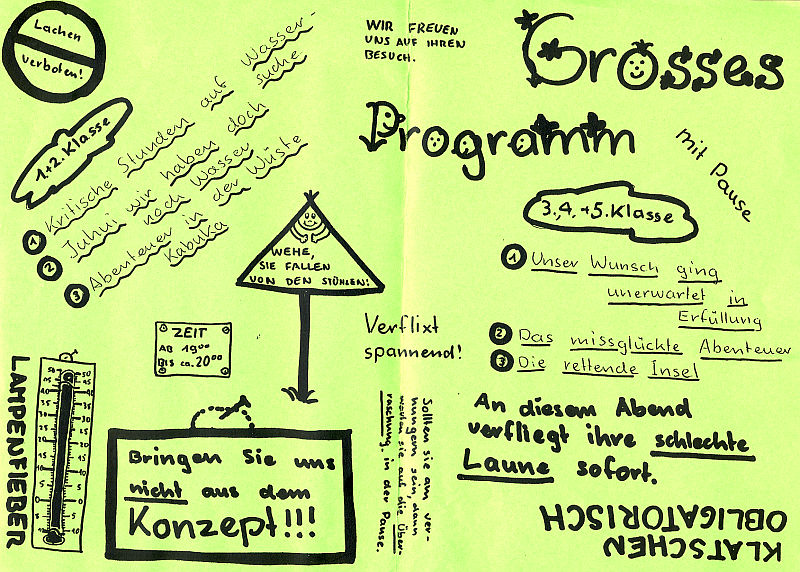 Lachen
verboten!
1+2. Klasse
1 Kritische Stunden auf Wasser-
suche
2 Juhui wir haben doch
noch Wasser
3 Abenteuer in der Wüste
Kabuka
WEHE,
SIE FALLEN
VON DEN STÜHLEN!
ZEIT
AB 19⁰⁰
BIS ca. 20⁰⁰
LAMPENFIEBER
50 50
40 45
35
30
25
20
15
10
5
0
5
10
Bringen Sie uns
nicht aus dem
Konzept!!!
WIR FREUEN
UNS AUF IHREN
BESUCH.
Grosses
Programm
mit Pause
3.,4.,+5.Klasse
1 Unser Wunsch ging
unerwartet in
Erfüllung
2 Das missglückte Abenteuer
3 Die rettende Insel
Verflixt
spannend!
Sollten sie am ver-
hungern sein, dann
warten sie auf die Über-
raschung, in der Pause.
An diesem Abend
verfliegt ihre schlechte
Laune sofort.
KLATSCHEN
OBLIGATORISCH